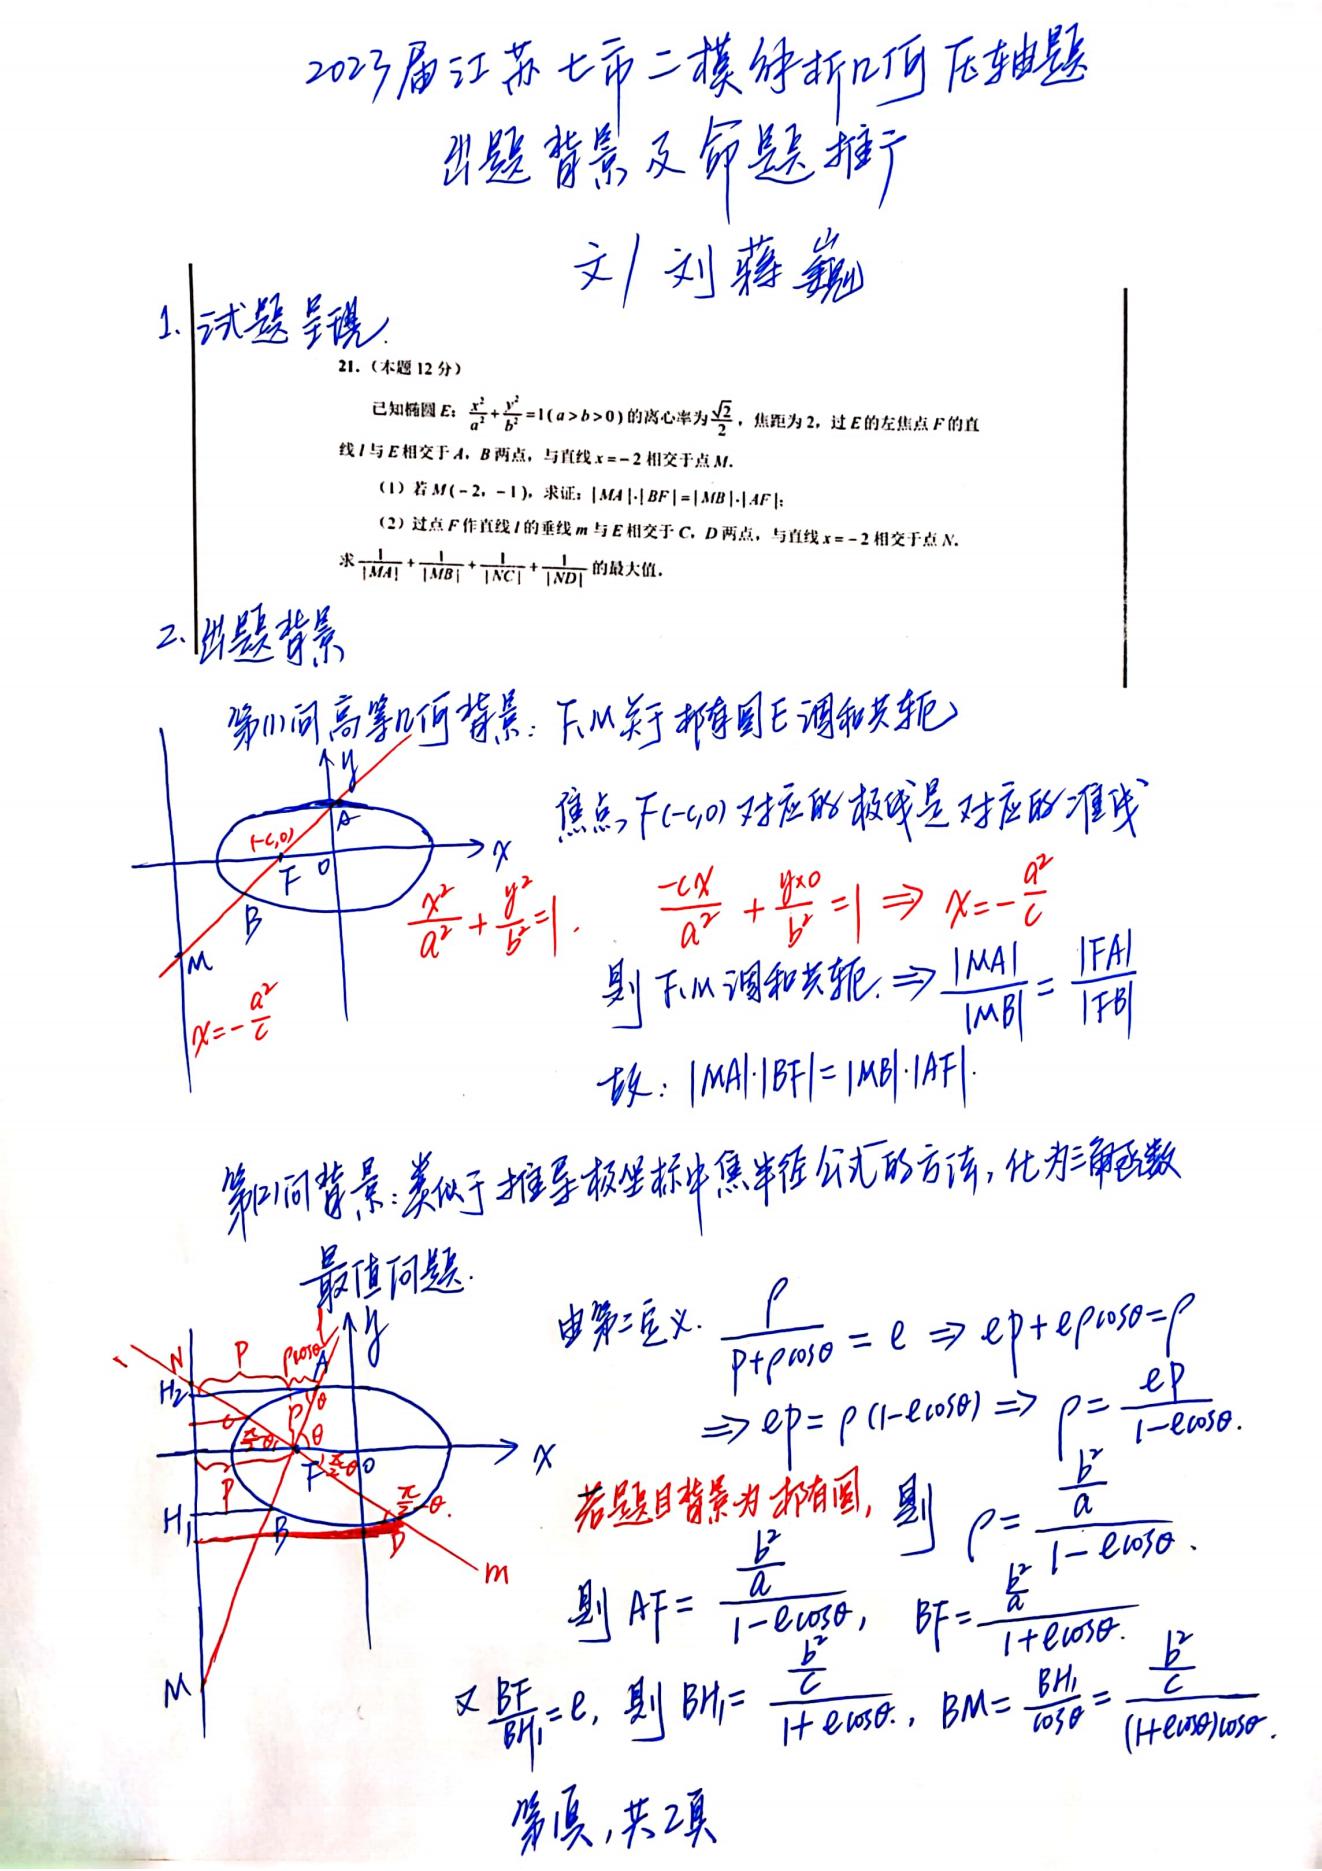 2023届江苏七市二模解析几何压轴题
出题背景及命题推广
文/刘蒋巍
1.试题呈现.
21.(本题12分)
已知椭圆E: x²/a²+y²/b²=1(a>b>0)的离心率为√2/2,焦距为2,过E的左焦点F的直
线l与E相交于A,B两点,与直线x=-2相交于点M.
(1)若M(-2,-1),求证:|MA|·|BF|=|MB|·|AF|;
(2)过点F作直线l的垂线m与E相交于C,D两点,与直线x=-2相交于点N.
求1/|MA|+1/|MB|+1/|NC|+1/|ND|的最大值.
2、出题背景
第(1)问高等几何背景:F、M关于椭圆E调和共轭
焦点F(-c,0)对应的极线是对应的准线
x²/a²+y²/b²=1. -cx/a²+y×0/b²=1⇒x=-a²/c
则F、M调和共轭.⇒|MA|/|MB|=|FA|/|FB|
故:|MA|·|BF|=|MB|·|AF|.
y
A
(-c,0)
F O x
B
M
x=-a²/c
第(2)问背景:类似于推导极坐标中焦半径公式的方法,化为三角函数
最值问题.
由第二定义. ρ/(p+ρcosθ)=e⇒ep+eρcosθ=ρ
⇒ep=ρ(1-ecosθ)⇒ρ=ep/(1-ecosθ).
若题目背景为椭圆,则ρ=(b²/a)/(1-ecosθ).
则AF=(b²/a)/(1-ecosθ), BF=(b²/a)/(1+ecosθ).
又BF/BH₁=e,则BH₁=(b²/c)/(1+ecosθ)., BM=BH₁/cosθ=(b²/c)/((1+ecosθ)cosθ).
l y
N p ρcosθ A
H₂ θ
C ρ
π/2-θ θ
F π/2-θ O x
p π/2-θ.
H₁ B D
m
M
第1页,共2页